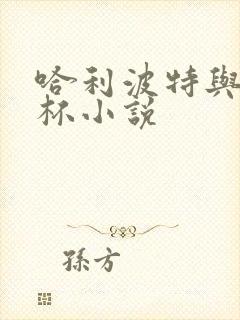 哈利波特與
杯小說
孫方